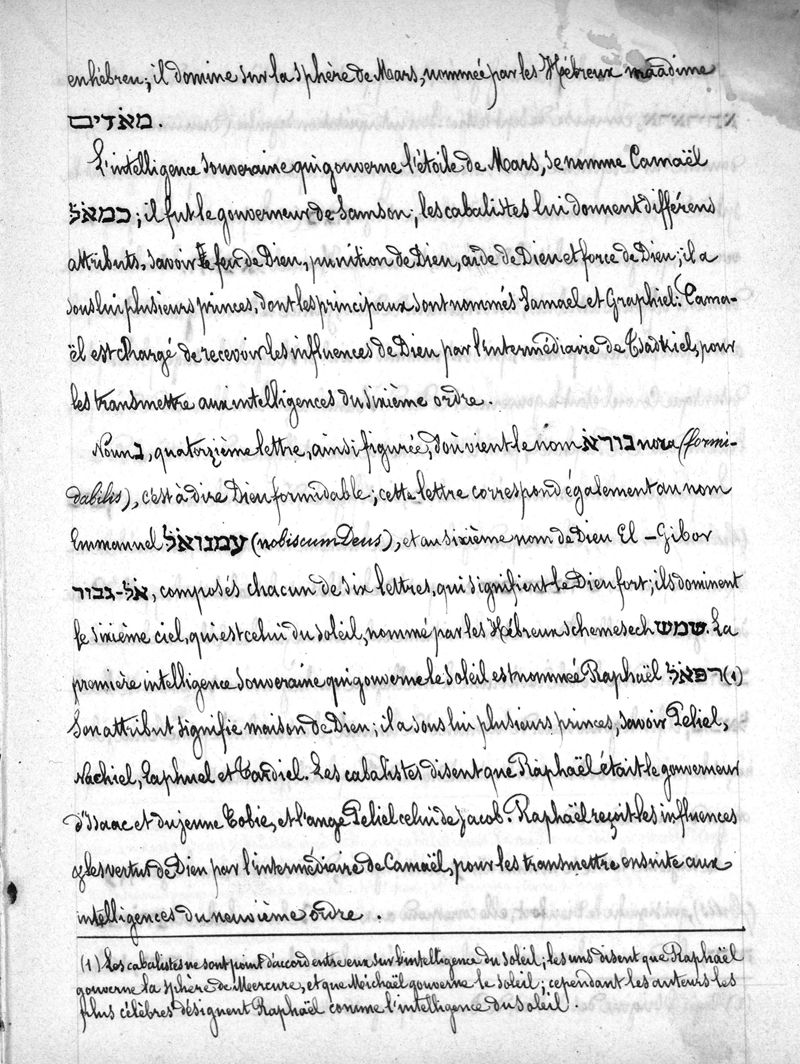 en hébreu; il domine sur la sphère de Mars, nommée par les Hébreux maadime
מאדים.
L'intelligence souveraine qui gouverne l'étoile de Mars, se nomme Camaël
כמאל; il fut le gouverneur de Samson; les cabalistes lui donnent différens
attributs, savoir le feu de Dieu, punition de Dieu, aide de Dieu et force de Dieu; il a
sous lui plusieurs princes, dont les principaux sont nommés Samael et Graphiel. Cama-
ël est chargé de recevoir les influences de Dieu par l'intermédiaire de Tsadkiel, pour
les transmettre aux intelligences du sixième ordre.
Noun נ, quatorzième lettre, ainsi figurée, d'où vient le nom נורא nora (formi-
dabilis), c'est à dire Dieu formidable; cette lettre correspond également au nom
Emmanuel עמנואל (nobiscum Deus), et au sixième nom de Dieu El-Gibor
אל-גבור, composés chacun de six lettres, qui signifient le Dieu fort; ils dominent
le sixième ciel, qui est celui du soleil, nommé par les Hébreux schemesech שמש. La
première intelligence souveraine qui gouverne le soleil est nommée Raphaël רפאל (1)
Son attribut signifie maison de Dieu; il a sous lui plusieurs princes, savoir Peliel,
Nachiel, Zaphuel et Vardiel. Les cabalistes disent que Raphaël était le gouverneur
d'Isaac et du jeune Tobie, et l'ange Peliel celui de Jacob. Raphaël reçoit les influences
& les vertus de Dieu par l'intermédiaire de Camaël, pour les transmettre ensuite aux
intelligences du neuvième ordre.
(1) Les cabalistes ne sont point d'accord entre eux sur l'intelligence du soleil; les uns disent que Raphaël
gouverne la sphère de Mercure, et que Michaël gouverne le soleil; cependant les auteurs les
plus célèbres désignent Raphaël comme l'intelligence du soleil.